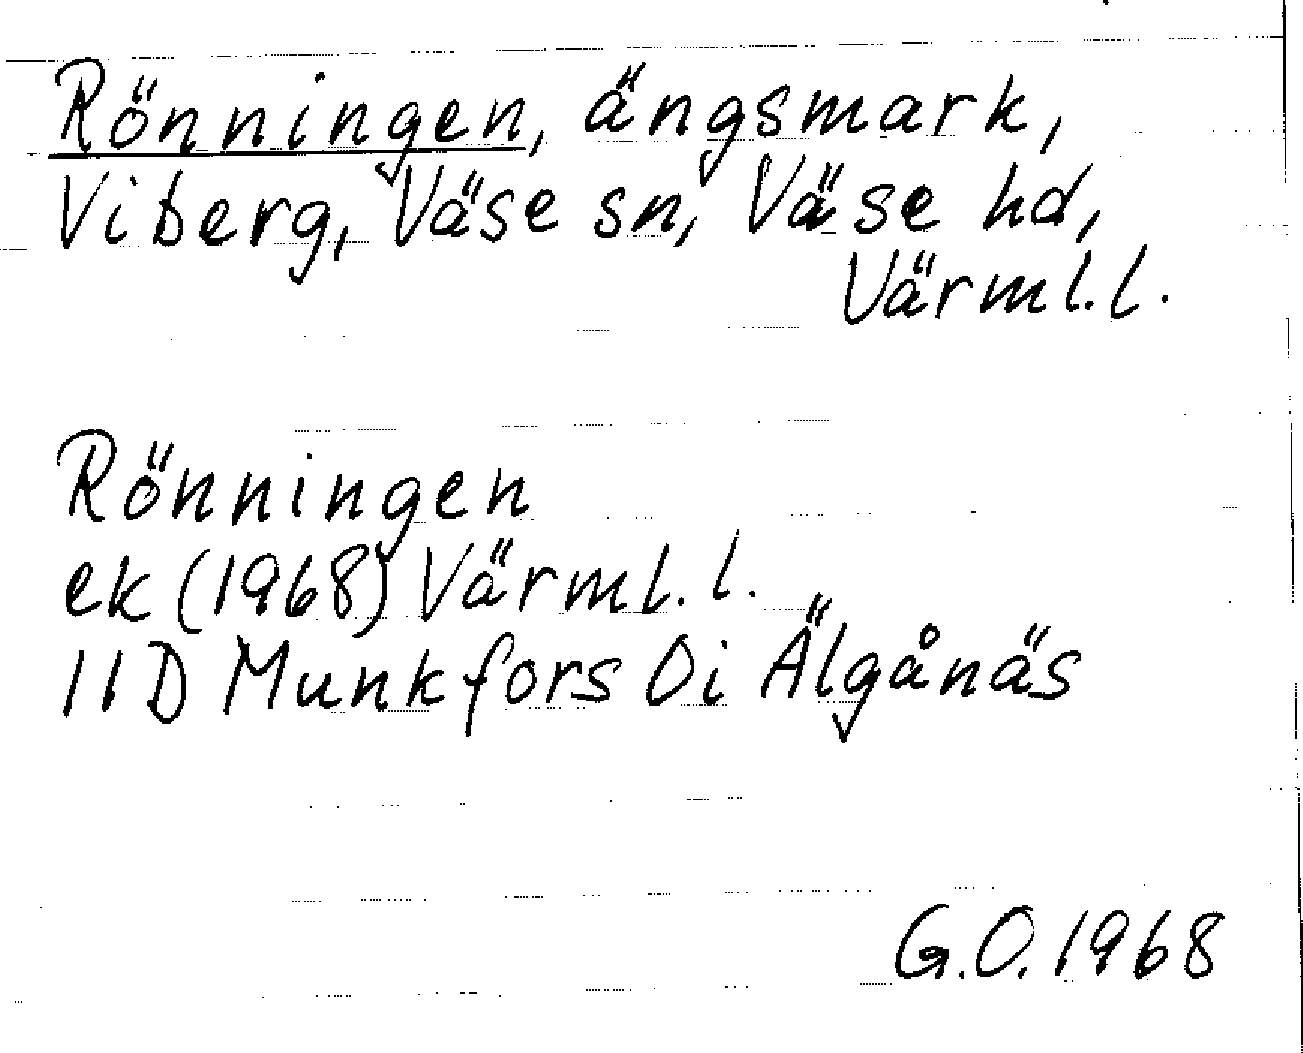 Rönningen, ängsmark,
Viberg, Väse sn, Väse hd,
Värml. l.
Rönningen
ek (1968) Värml. l.
11D Munkfors 0i Älgånäs
G.O. 1968